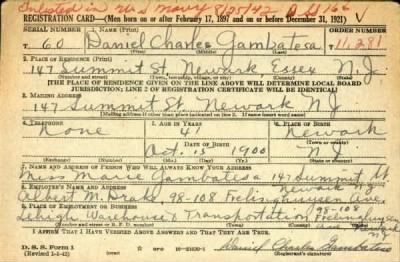 Enlisted in U.S. Navy 8/25/42
REGISTRATION CARD—(Men born on or after February 17, 1897 and on or before December 31, 1921) V
SERIAL NUMBER 1. NAME (Print) ORDER NUMBER
T 60 Daniel Charles Gambatesa T 11,281
(First) (Middle) (Last)
2. PLACE OF RESIDENCE (Print)
147 Summit St. Newark Essex N J
(Number and street) (Town, township, village, or city) (County) (State)
[THE PLACE OF RESIDENCE GIVEN ON THE LINE ABOVE WILL DETERMINE LOCAL BOARD
JURISDICTION; LINE 2 OF REGISTRATION CERTIFICATE WILL BE IDENTICAL]
3. MAILING ADDRESS
147 Summit St. Newark N J
[Mailing address if other than place indicated on line 2. If same insert word same]
4. TELEPHONE 5. AGE IN YEARS 6. PLACE OF BIRTH
None 41 Newark
DATE OF BIRTH (Town or county)
Oct. 15 1900 N J
(Exchange) (Number) (Mo.) (Day) (Yr.) (State or country)
7. NAME AND ADDRESS OF PERSON WHO WILL ALWAYS KNOW YOUR ADDRESS
Miss Marie Gambatesa 147 Summit St.
Newark NJ
8. EMPLOYER'S NAME AND ADDRESS
Albert M. Drake, 98-108 Frelinghuysen Ave.
9. PLACE OF EMPLOYMENT OR BUSINESS 98-108
Lehigh Warehouse & Transportation Frelinghuysen
Ave Newark NJ
(Number and street or R. F. D. number) (Town) (County) (State)
I AFFIRM THAT I HAVE VERIFIED ABOVE ANSWERS AND THAT THEY ARE TRUE.
D. S. S. Form 1
(Revised 1-1-42) (over) 16—21630-1
Daniel Charles Gambatesa
(Registrant's signature)